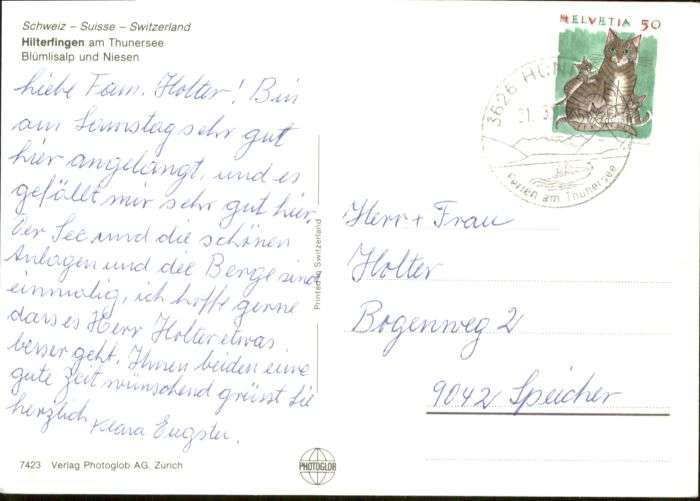 Schweiz – Suisse – Switzerland
Hilterfingen am Thunersee
Blümlisalp und Niesen
Liebe Fam. Holter! Bin
am Samstag sehr gut
hier angelangt, und es
gefällt mir sehr gut hier.
Der See und die schönen
Anlagen und die Berge sind
einmalig, ich hoffe gerne
dass es Herr Holter etwas
besser geht. Ihnen beiden eine
gute Zeit wünschend grüsst Sie
herzlich Klara Eugster.
7423 Verlag Photoglob AG, Zürich
PHOTOGLOB
Printed in Switzerland
HELVETIA 50
3626 HÜN
Ferien am Thunersee
Herr + Frau
Holter
Bogenweg 2
9042 Speicher